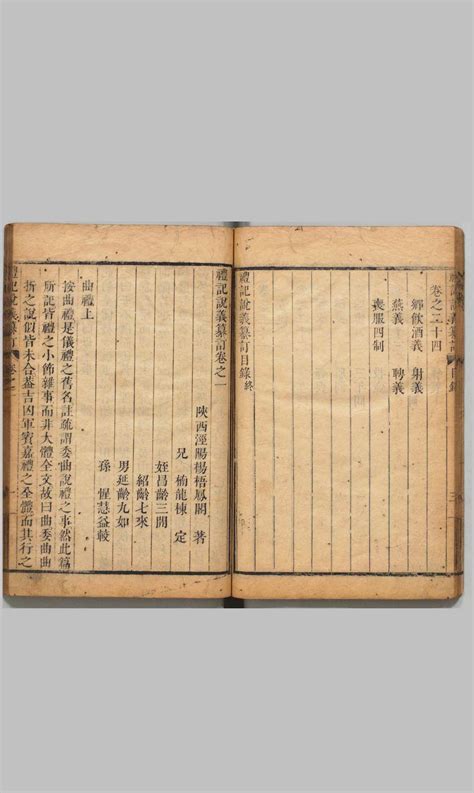 卷之二十四
鄉飲酒義　射義
燕義　聘義
喪服四制
禮記說義纂訂目錄終
禮記說義纂訂卷之一
陝西涇陽楊梧鳳閣　著
兄　楠龍棟　定
姪昌齡三開
紹齡七來
男延齡九如
孫　惺慧益較
曲禮上
按曲禮是儀禮之舊名註疏謂委曲說禮之事然此篇
所記皆禮之小飾雜事而非大體全文故曰曲委曲曲
折之說似皆未合蓋吉凶軍賓嘉禮之全體而其行之
禮記說義纂訂　卷之一